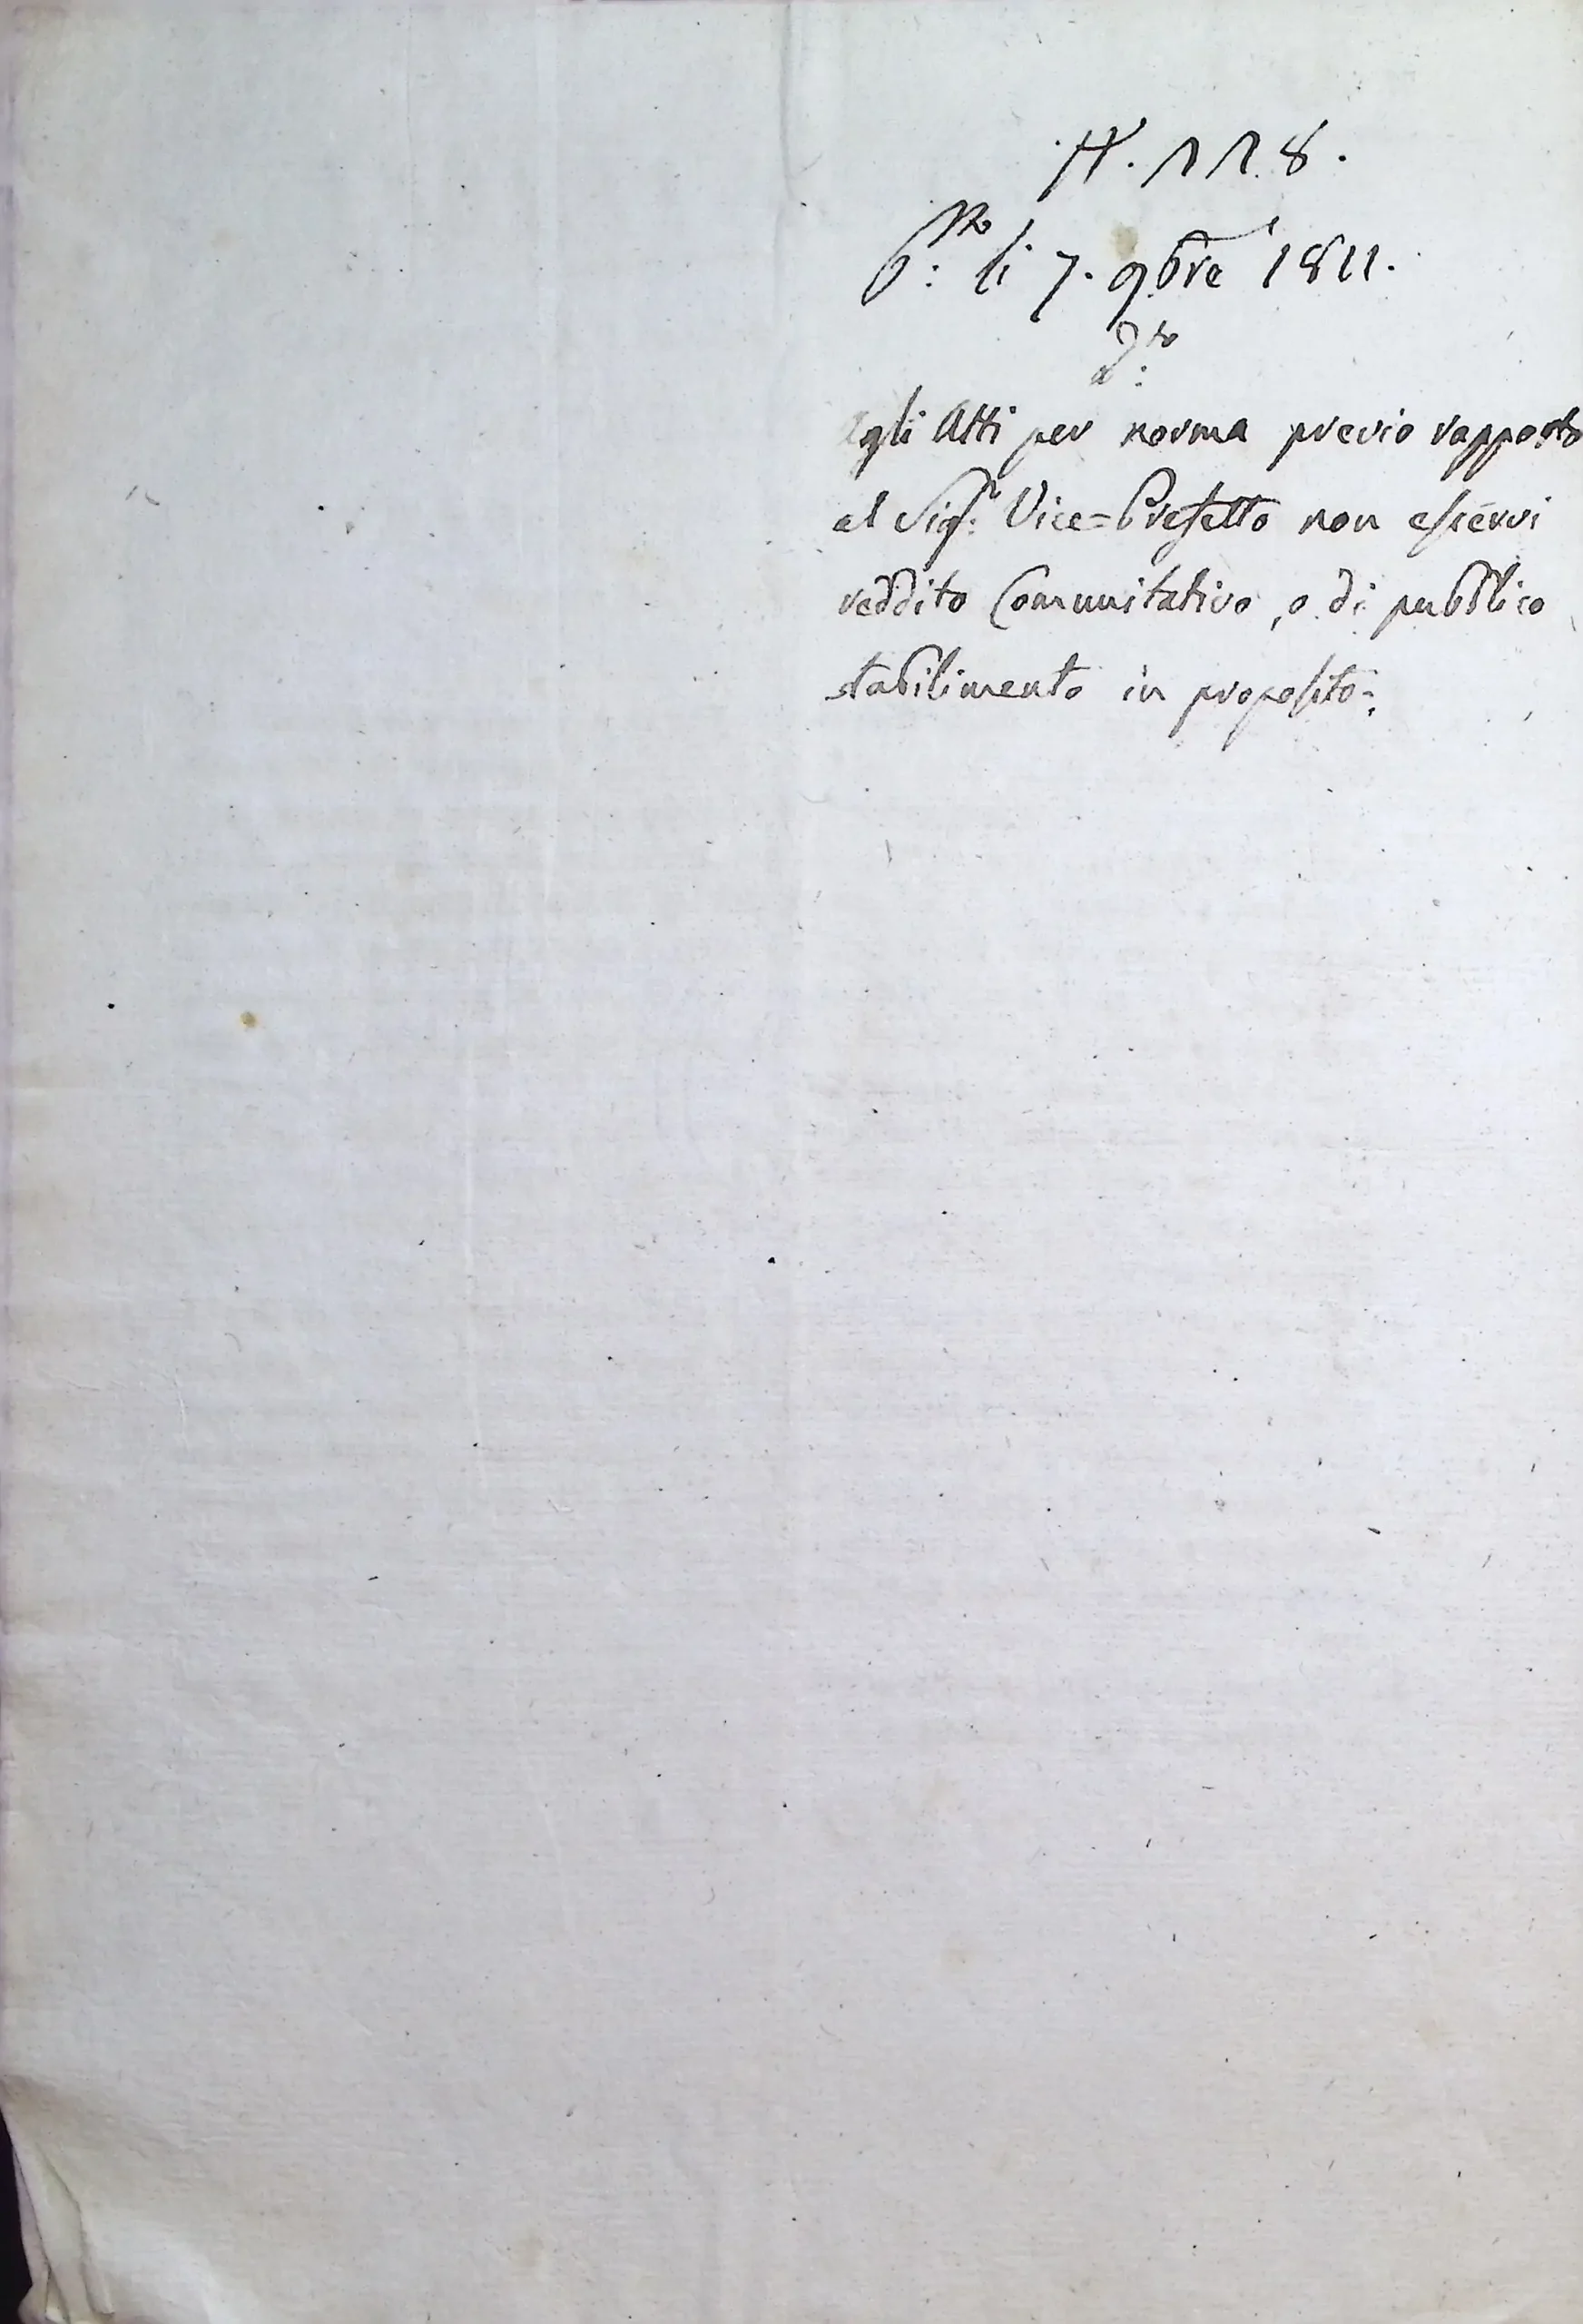 N. 118.
P:to li 7. 9bre 1811.
D:to
Agli Atti per norma previo rapporto
al Sig:r Vice=Prefetto non esservi
reddito Comunitativo, o di pubblico
stabilimento in proposito: